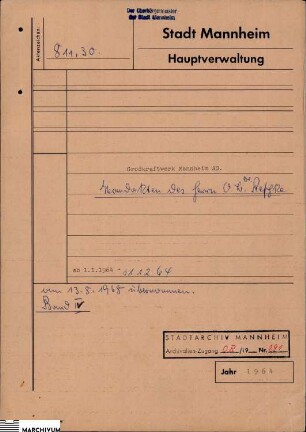 Der Oberbürgermeister
der Stadt Mannheim
Stadt Mannheim
Hauptverwaltung
Aktenzeichen:
811,30
Großkraftwerk Mannheim AG.
Handakten des Herrn O. B. Dr.
ab 1.1.1964 - 31.12.64
am 13.8.1968 übernommen.
Band IV
STADTARCHIV MANNHEIM
Archivalien-Zugang /19 Nr. 191
Jahr 1964
MARCHIVUM